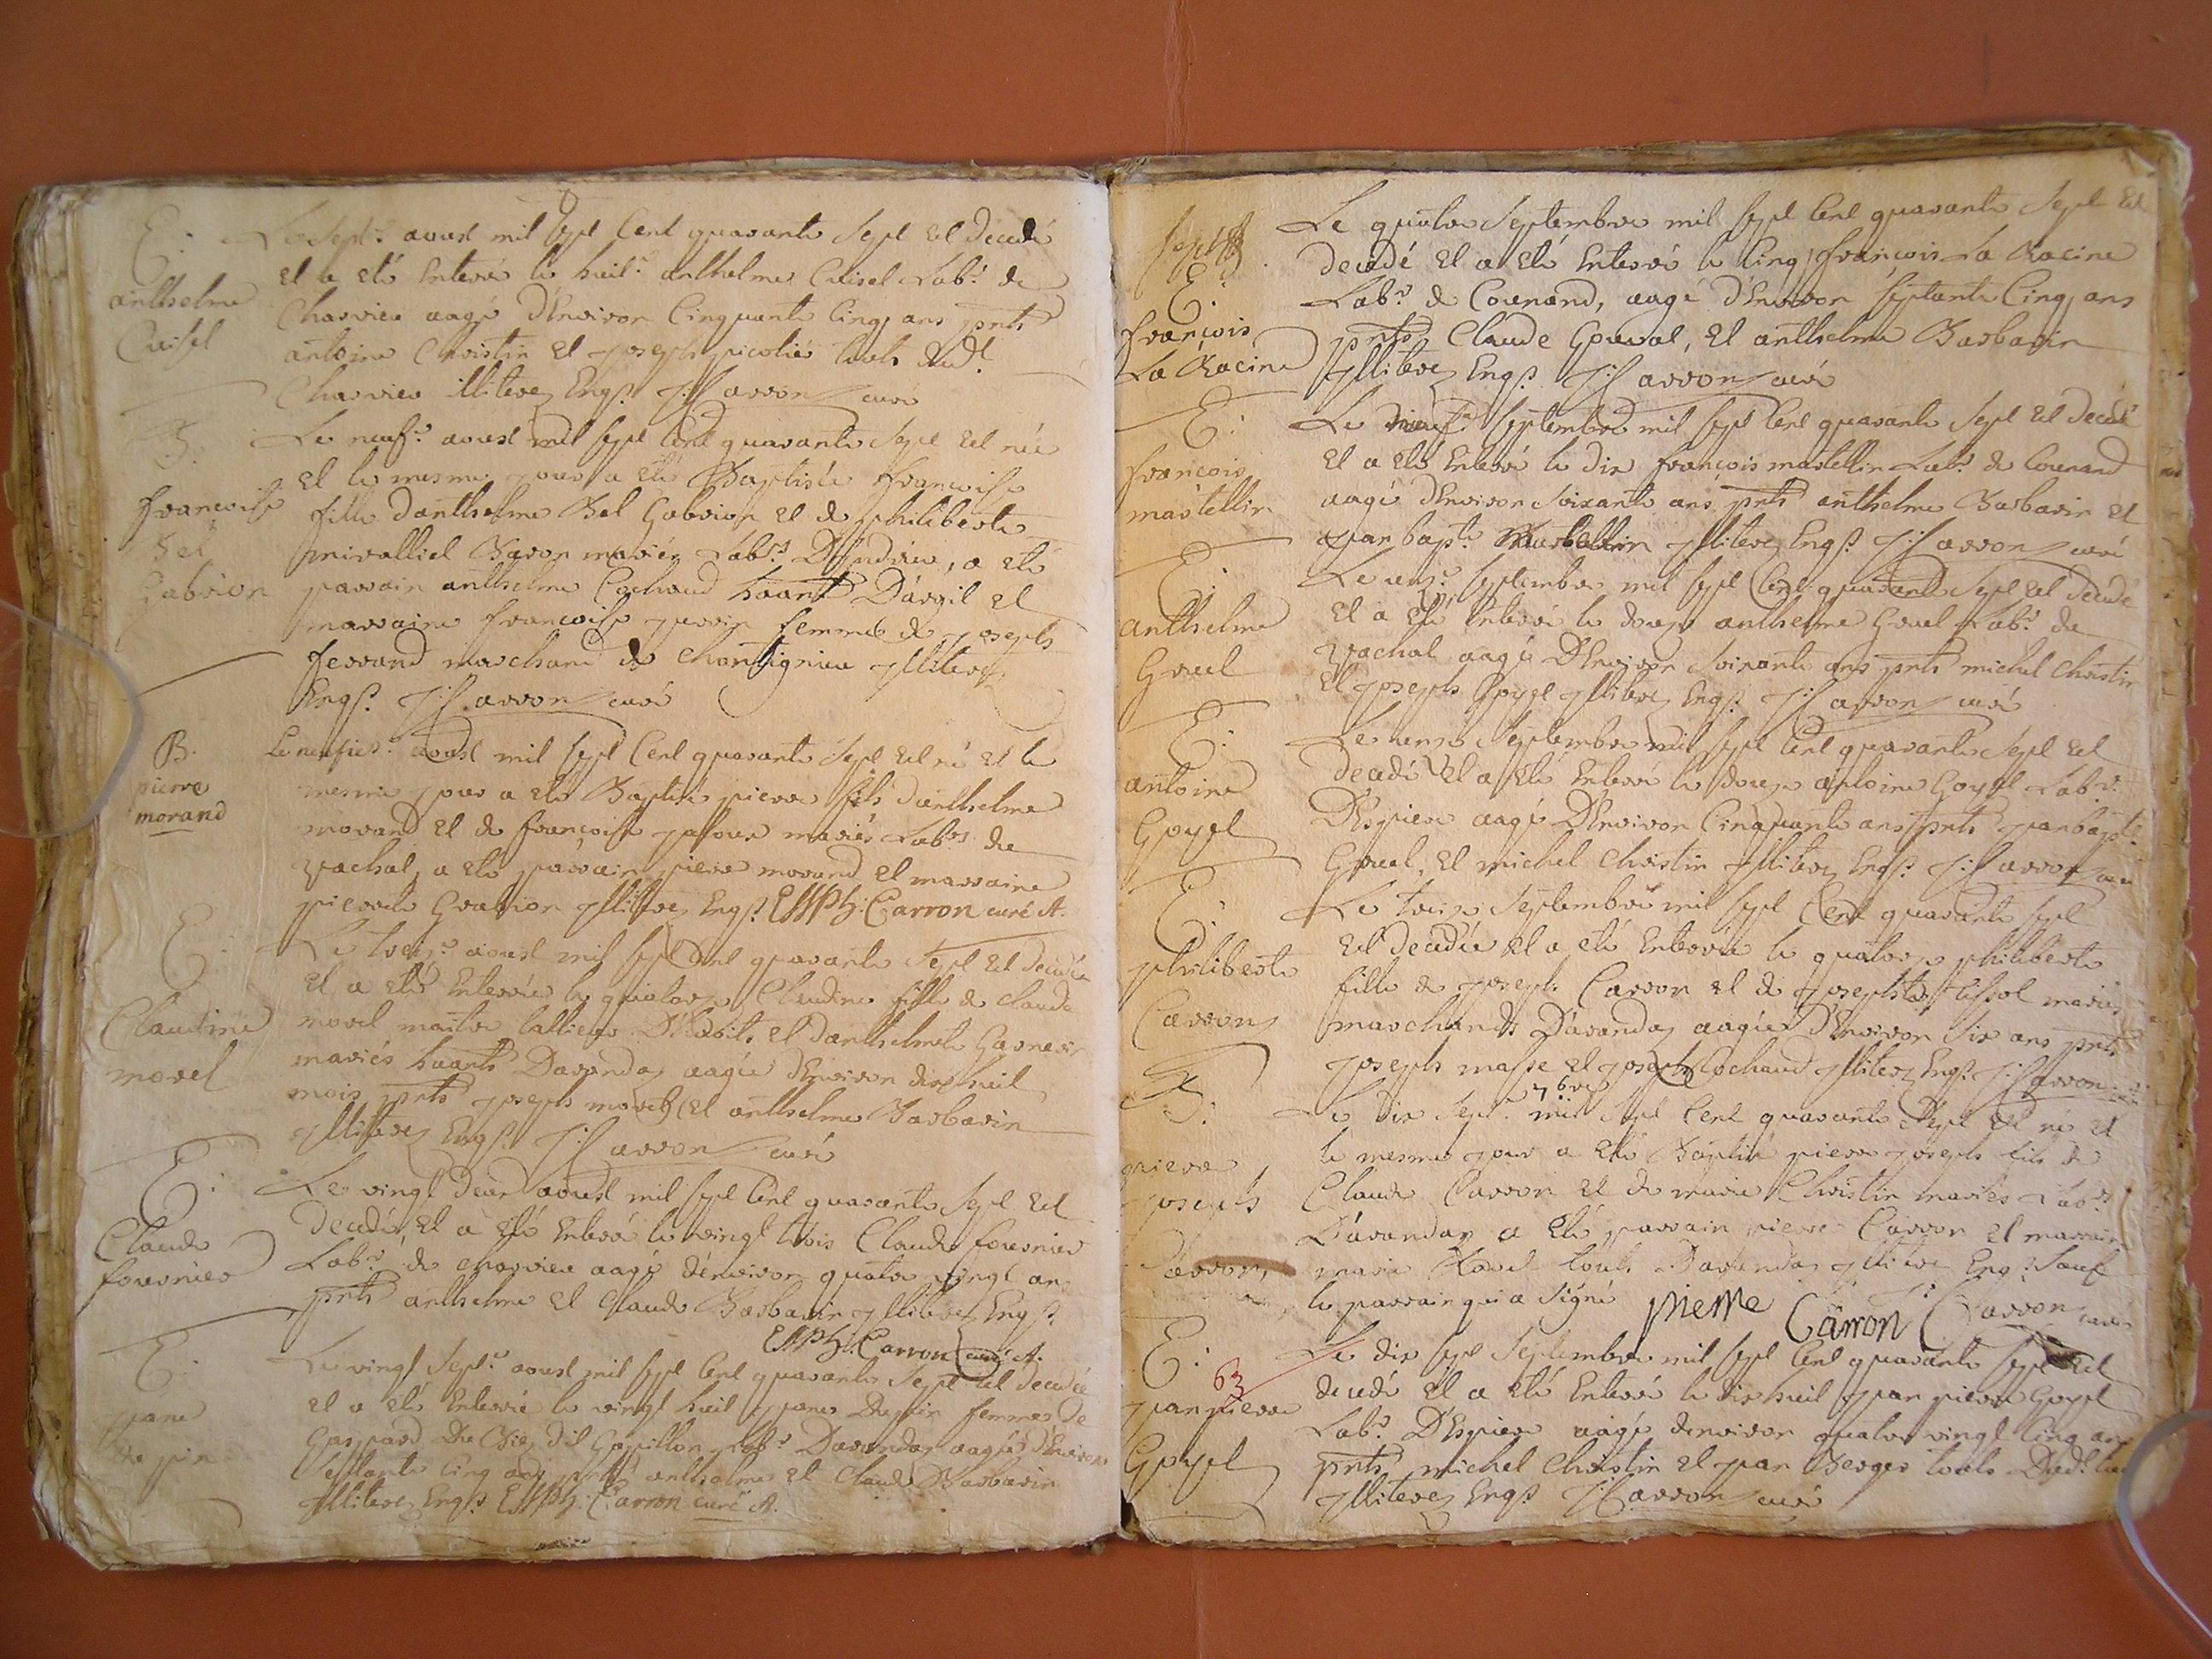 E.
anthelme
Cuisel
Le sept.e aoust mil sept cent quarante sept est décédé
et a eté enterré le huit.e anthelme Cuisel Lab.r de
Charvieu aagé d'Environ Cinquante Cinq ans pnts
antoine Christin et joseph picolié touts dud.t
Charvieu illiterez Enq.s J: Carron curé
B.
françoise
Bel
Gabrion
Le neuf.e aoust mil sept cent quarante sept est née
et le mesme jour a eté Baptisée françoise
fille d'anthelme Bel Gabrion et de philiberte
miralliet Baron mariéz Lab.rs D'Andrieu, a eté
parrain anthelme Cochaud haant D'argil et
marraine françoise perrin femme de joseph
ferrand marchand de chontignieu illiterez
Enq.s J: Carron curé
B.
pierre
morand
Le neufie.e aoust mil sept cent quarante sept est né et le
mesme jour a eté Baptisé pierre fils d'anthelme
morand et de françoise jalour mariés Lab.rs de
vachat, a eté parrain pierre morand et marraine
pierrete Gration illiterez Enq.s Carron curé A.
E.
Claudine
morel
Le treiz.e aoust mil sept Cent quarante sept est décédée
et a eté enterrée le quatorze Claudine fille de claude
morel maitre tallieur D'habits et d'anthelmete Garnerin
mariés haants Daranday aagée d'Environ dix huit
mois pnts joseph morel et anthelme Barbarin
illiterez Enq.s J: Carron curé
E.
Claude
fournier
Le vingt deux aoust mil sept cent quarante sept est
Décédé, et a eté enterré le vingt trois Claude fournier
Lab.r de charvieu aagé d'environ quatre vingt ans
pnts anthelme et Claude Barbarin illiterez Enq.s
Carron curé A.
E.
jane
Le vingt sept.e aoust mil sept cent quarante sept est décédée
et a eté enterrée le vingt huit jane Dupin femme de
Gaspard Du Biez dit Gapillon Lab.r Daranday aagée d'Environ
septante cinq ans pnts anthelme et Claude Barbarin
illiterez Enq.s Carron curé A.
E.
françois
La Racine
Le quatre Septembre mil sept Cent quarante sept est
decedé et a eté enterré le Cinq françois La Racine
Lab.r de Connand, aagé d'Environ septante Cinq ans
pnts Claude Gouvat, et anthelme Barbarin
illiterez Enq.s J: Carron curé
E.
françois
martellin
Le neuf.e Septembre mil sept cent quarante sept est decedé
et a eté enterré le dix françois martellin Lab.r de Connand
aagé d'Environ soixante ans pnts anthelme Barbarin et
jean bapt.e Martellin illiterez Enq.s J: Carron curé
E.
anthelme
Gruel
Le unz.e Septembre mil sept Cent quarante sept est decedé
et a eté enterré le douze anthelme Gruel Lab.r de
vachat aagé D'Environ soixante ans pnts michel Christin
et joseph Goyet illiterez Enq.s J: Carron curé
E.
antoine
Goyet
Le unze Septembre mil sept cent quarante sept est
decedé et a eté enterré le douze antoine Goyet Lab.r
D'Espiere aagé D'Environ Cinquante ans pnts jean bapt.e
Gruel, et michel Christin illiterez Enq.s J: Carron
E.
philiberte
Carron
Le treize Septembre mil sept Cent quarante sept
est decedée et a eté enterrée le quatorze philiberte
fille de joseph Carron et de josephte tissot mariés
marchands D'aranday aagée D'Environ six ans pnts
joseph masse et joseph Cochaud illiterez Enq.s J: Carron
B.
pierre
joseph
Carron
Le dix sept.e 7bre mil sept cent quarante sept est né et
le mesme jour a eté Baptisé pierre joseph fils de
Claude Carron et de marie Christin mariés Lab.rs
D'aranday a eté parrain pierre Carron et marraine
marie Ravet touts Daranday illiterez Enq.s sauf
le parrain qui a signé pierre Carron J: Carron curé
E.
63
jean pierre
Goyet
Le dix sept Septembre mil sept cent quarante sept est
decedé et a eté enterré le dix huit jean pierre Goyet
Lab.r D'Espiere aagé denviron quatre vingt Cinq ans
pnts michel Christin et jean Berger touts Dud.t lieu
illiterez Enq.s J: Carron curé